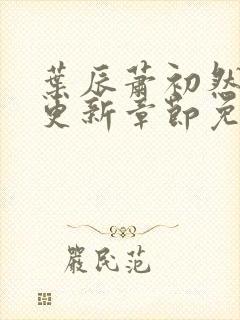 葉辰蕭初然
更新章節免
嚴民范